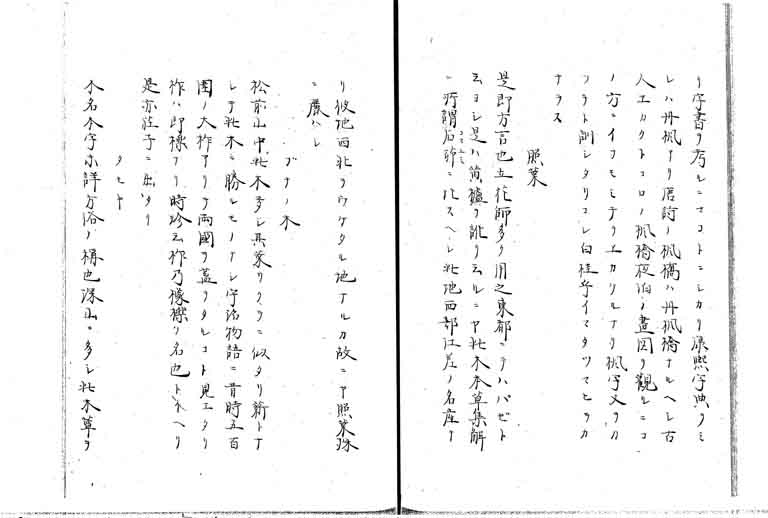 リ字書ヲ考ルニマコトニシカリ康熙字典ヲミ
レハ丹楓ナリ唐詩ノ楓橋ハ丹楓橋ナルヘシ古
人エカクトコロノ楓橋夜泊ノ畫図ヲ觀ルニココ
ノ方ニイフモミチヲエカケルナリ楓字又ヲカ
ツラト訓シタリコレ白桂乎イマタツマヒラカ
ナラス
照葉
是即方言也立花師多ク用之東都ニテハハゼト
云ヨシ是ハ黄櫨ヲ訛リ云ルニヤ此木本草集解
ニ所謂石
ニ比スヘシ此地西部江差ノ名産ナ
リ彼地西北ヲウケタル地ナルカ故ニヤ照葉殊
ニ麗ハシ
ブナノ木
松前山中此木多シ其葉クリニ似タリ薪トナ
シテ此木ニ勝レモノナシ宇治物語ニ昔時五百
囲ノ大柞アリテ両國ヲ蓋ヒタルコト見エタリ
柞ハ即櫟ナリ時珍云柞乃橡櫟ノ名也トイヘリ
是亦莊子ニ出タリ
タモ
木名本字未詳方俗ノ稱也深山ニ多シ此木草ヲ